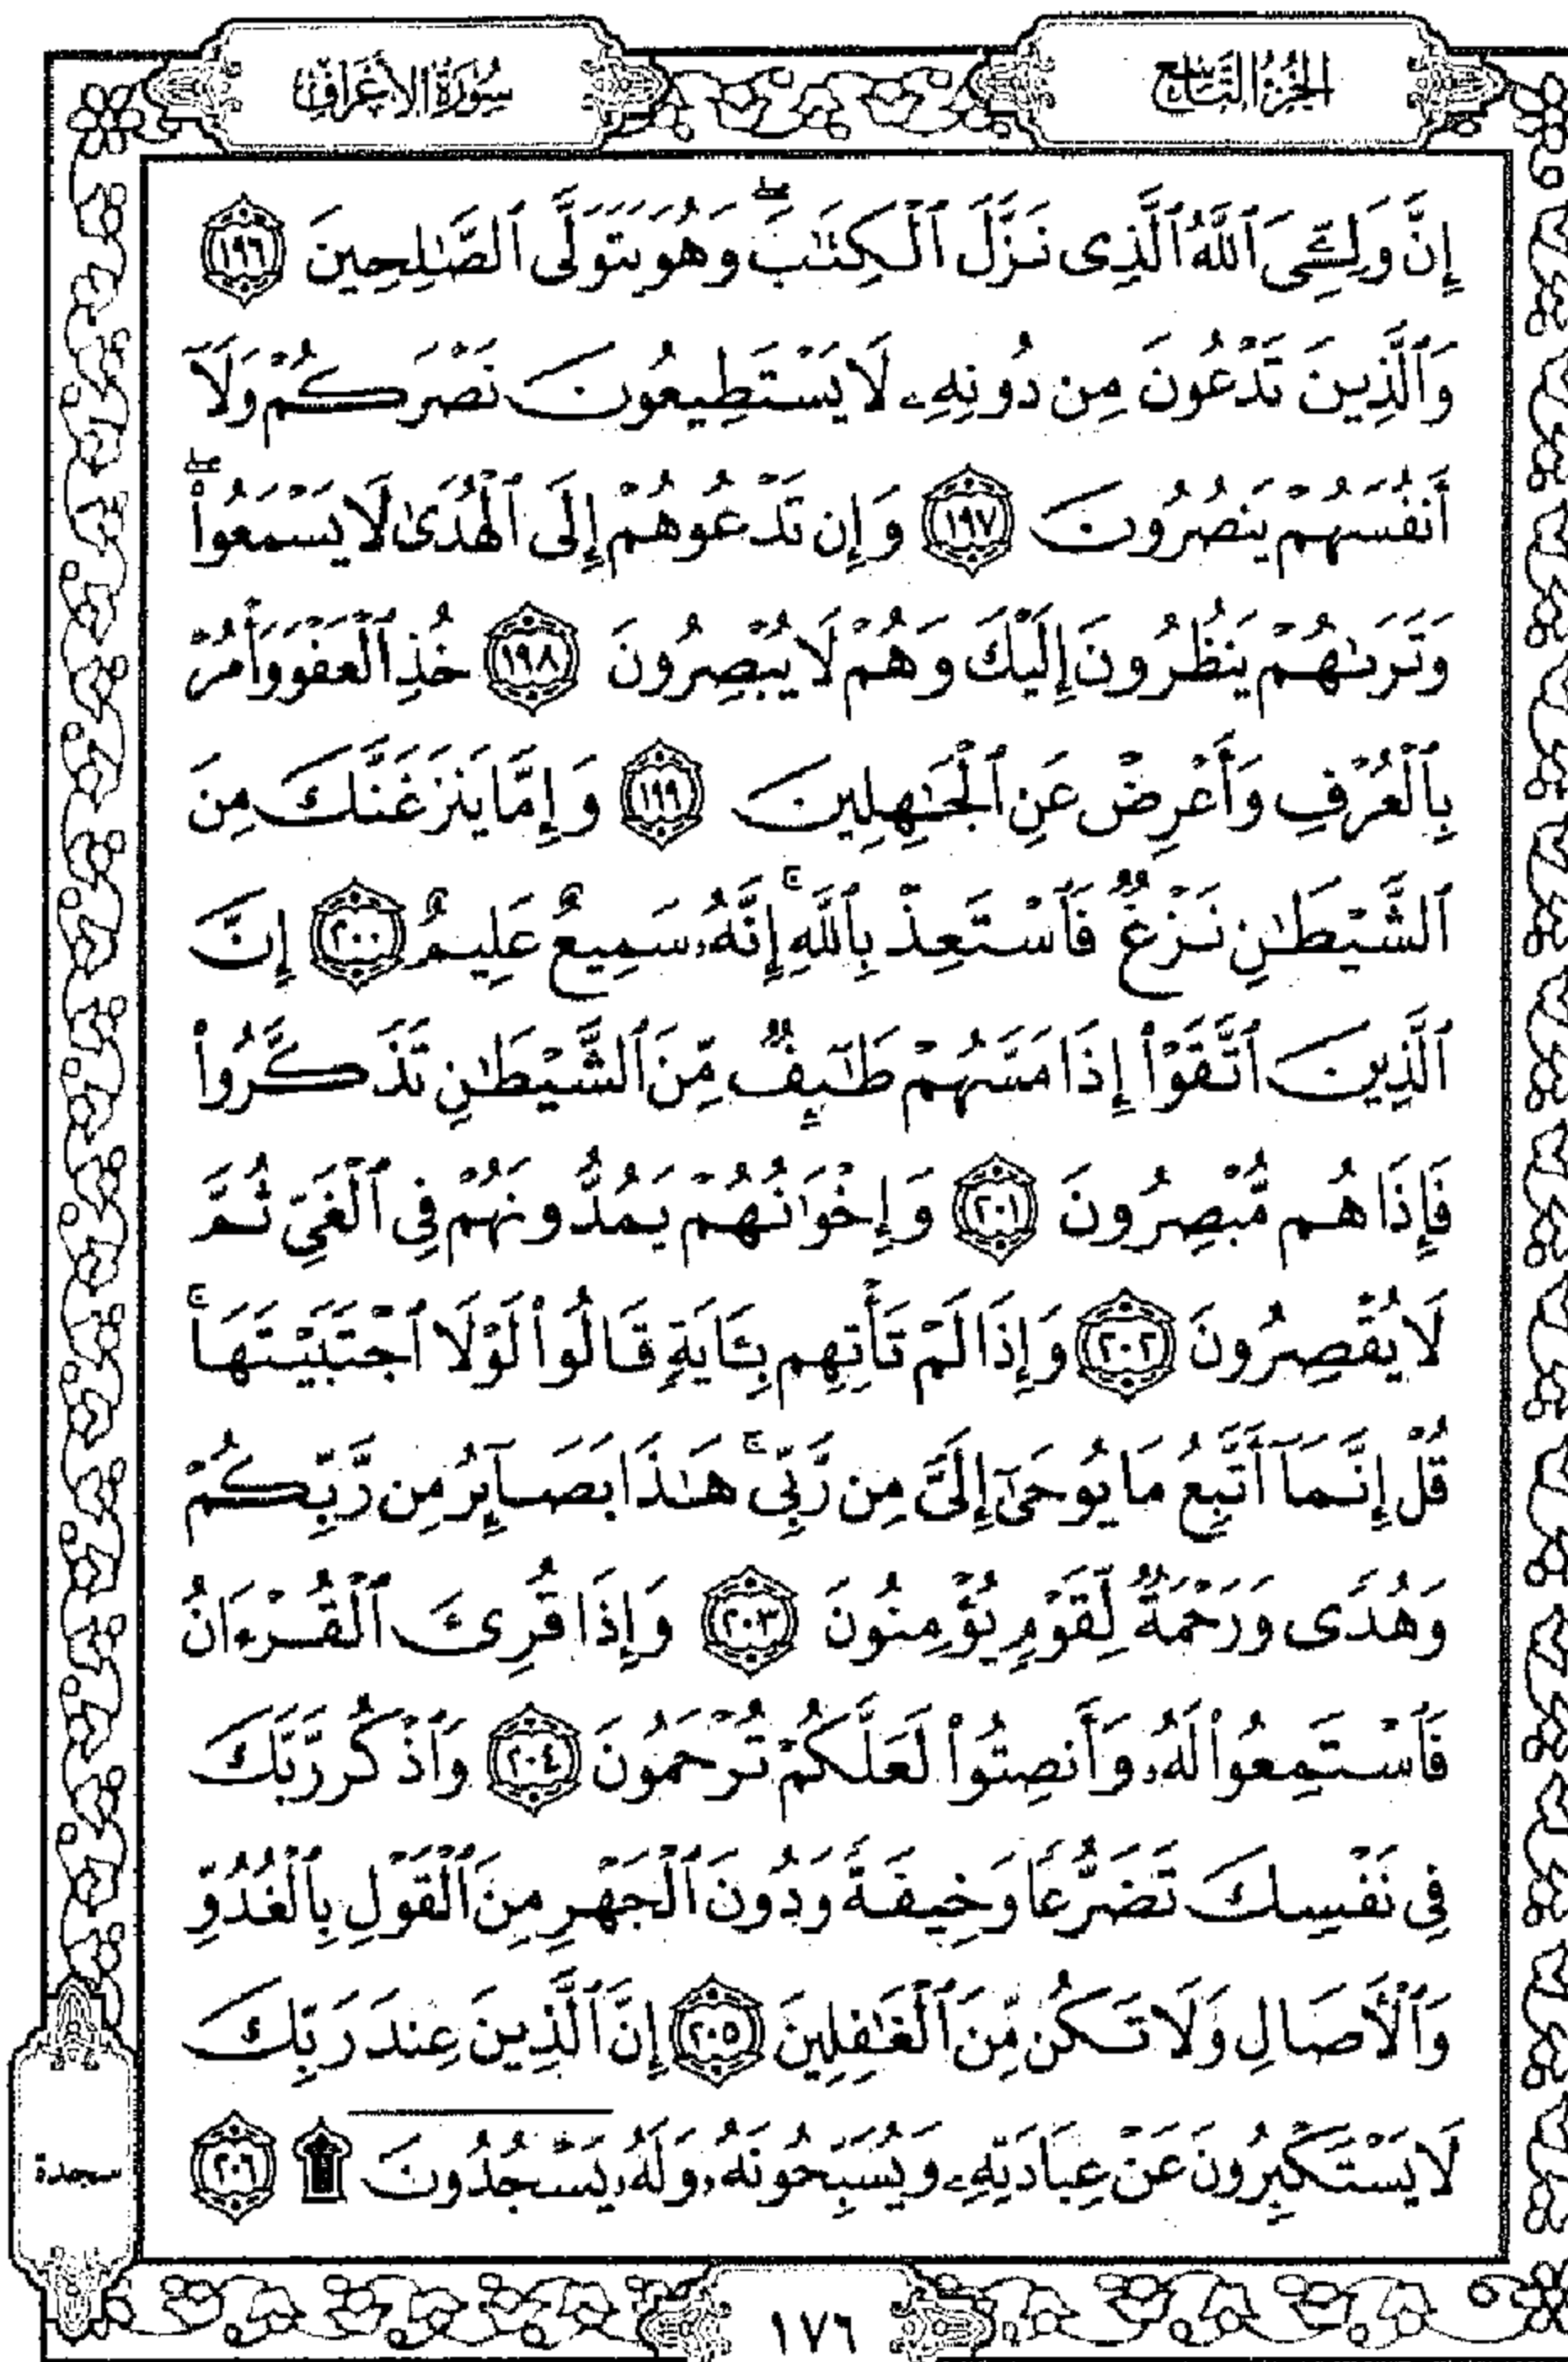 الجزء التاسع
سورة الأعراف
إِنَّ وَلِـِّۧىَ ٱللَّهُ ٱلَّذِى نَزَّلَ ٱلْكِتَٰبَ ۖ وَهُوَ يَتَوَلَّى ٱلصَّٰلِحِينَ ١٩٦
وَٱلَّذِينَ تَدْعُونَ مِن دُونِهِۦ لَا يَسْتَطِيعُونَ نَصْرَكُمْ وَلَآ
أَنفُسَهُمْ يَنصُرُونَ ١٩٧ وَإِن تَدْعُوهُمْ إِلَى ٱلْهُدَىٰ لَا يَسْمَعُوا۟ ۖ
وَتَرَىٰهُمْ يَنظُرُونَ إِلَيْكَ وَهُمْ لَا يُبْصِرُونَ ١٩٨ خُذِ ٱلْعَفْوَ وَأْمُرْ
بِٱلْعُرْفِ وَأَعْرِضْ عَنِ ٱلْجَٰهِلِينَ ١٩٩ وَإِمَّا يَنزَغَنَّكَ مِنَ
ٱلشَّيْطَٰنِ نَزْغٌ فَٱسْتَعِذْ بِٱللَّهِ ۚ إِنَّهُۥ سَمِيعٌ عَلِيمٌ ٢٠٠ إِنَّ
ٱلَّذِينَ ٱتَّقَوْا۟ إِذَا مَسَّهُمْ طَٰٓئِفٌ مِّنَ ٱلشَّيْطَٰنِ تَذَكَّرُوا۟
فَإِذَا هُم مُّبْصِرُونَ ٢٠١ وَإِخْوَٰنُهُمْ يَمُدُّونَهُمْ فِى ٱلْغَىِّ ثُمَّ
لَا يُقْصِرُونَ ٢٠٢ وَإِذَا لَمْ تَأْتِهِم بِـَٔايَةٍ قَالُوا۟ لَوْلَا ٱجْتَبَيْتَهَا ۚ
قُلْ إِنَّمَآ أَتَّبِعُ مَا يُوحَىٰٓ إِلَىَّ مِن رَّبِّى ۚ هَٰذَا بَصَآئِرُ مِن رَّبِّكُمْ
وَهُدًى وَرَحْمَةٌ لِّقَوْمٍ يُؤْمِنُونَ ٢٠٣ وَإِذَا قُرِئَ ٱلْقُرْءَانُ
فَٱسْتَمِعُوا۟ لَهُۥ وَأَنصِتُوا۟ لَعَلَّكُمْ تُرْحَمُونَ ٢٠٤ وَٱذْكُر رَّبَّكَ
فِى نَفْسِكَ تَضَرُّعًا وَخِيفَةً وَدُونَ ٱلْجَهْرِ مِنَ ٱلْقَوْلِ بِٱلْغُدُوِّ
وَٱلْـَٔاصَالِ وَلَا تَكُن مِّنَ ٱلْغَٰفِلِينَ ٢٠٥ إِنَّ ٱلَّذِينَ عِندَ رَبِّكَ
لَا يَسْتَكْبِرُونَ عَنْ عِبَادَتِهِۦ وَيُسَبِّحُونَهُۥ وَلَهُۥ يَسْجُدُونَ ۩ ٢٠٦
سجدة
١٧٦